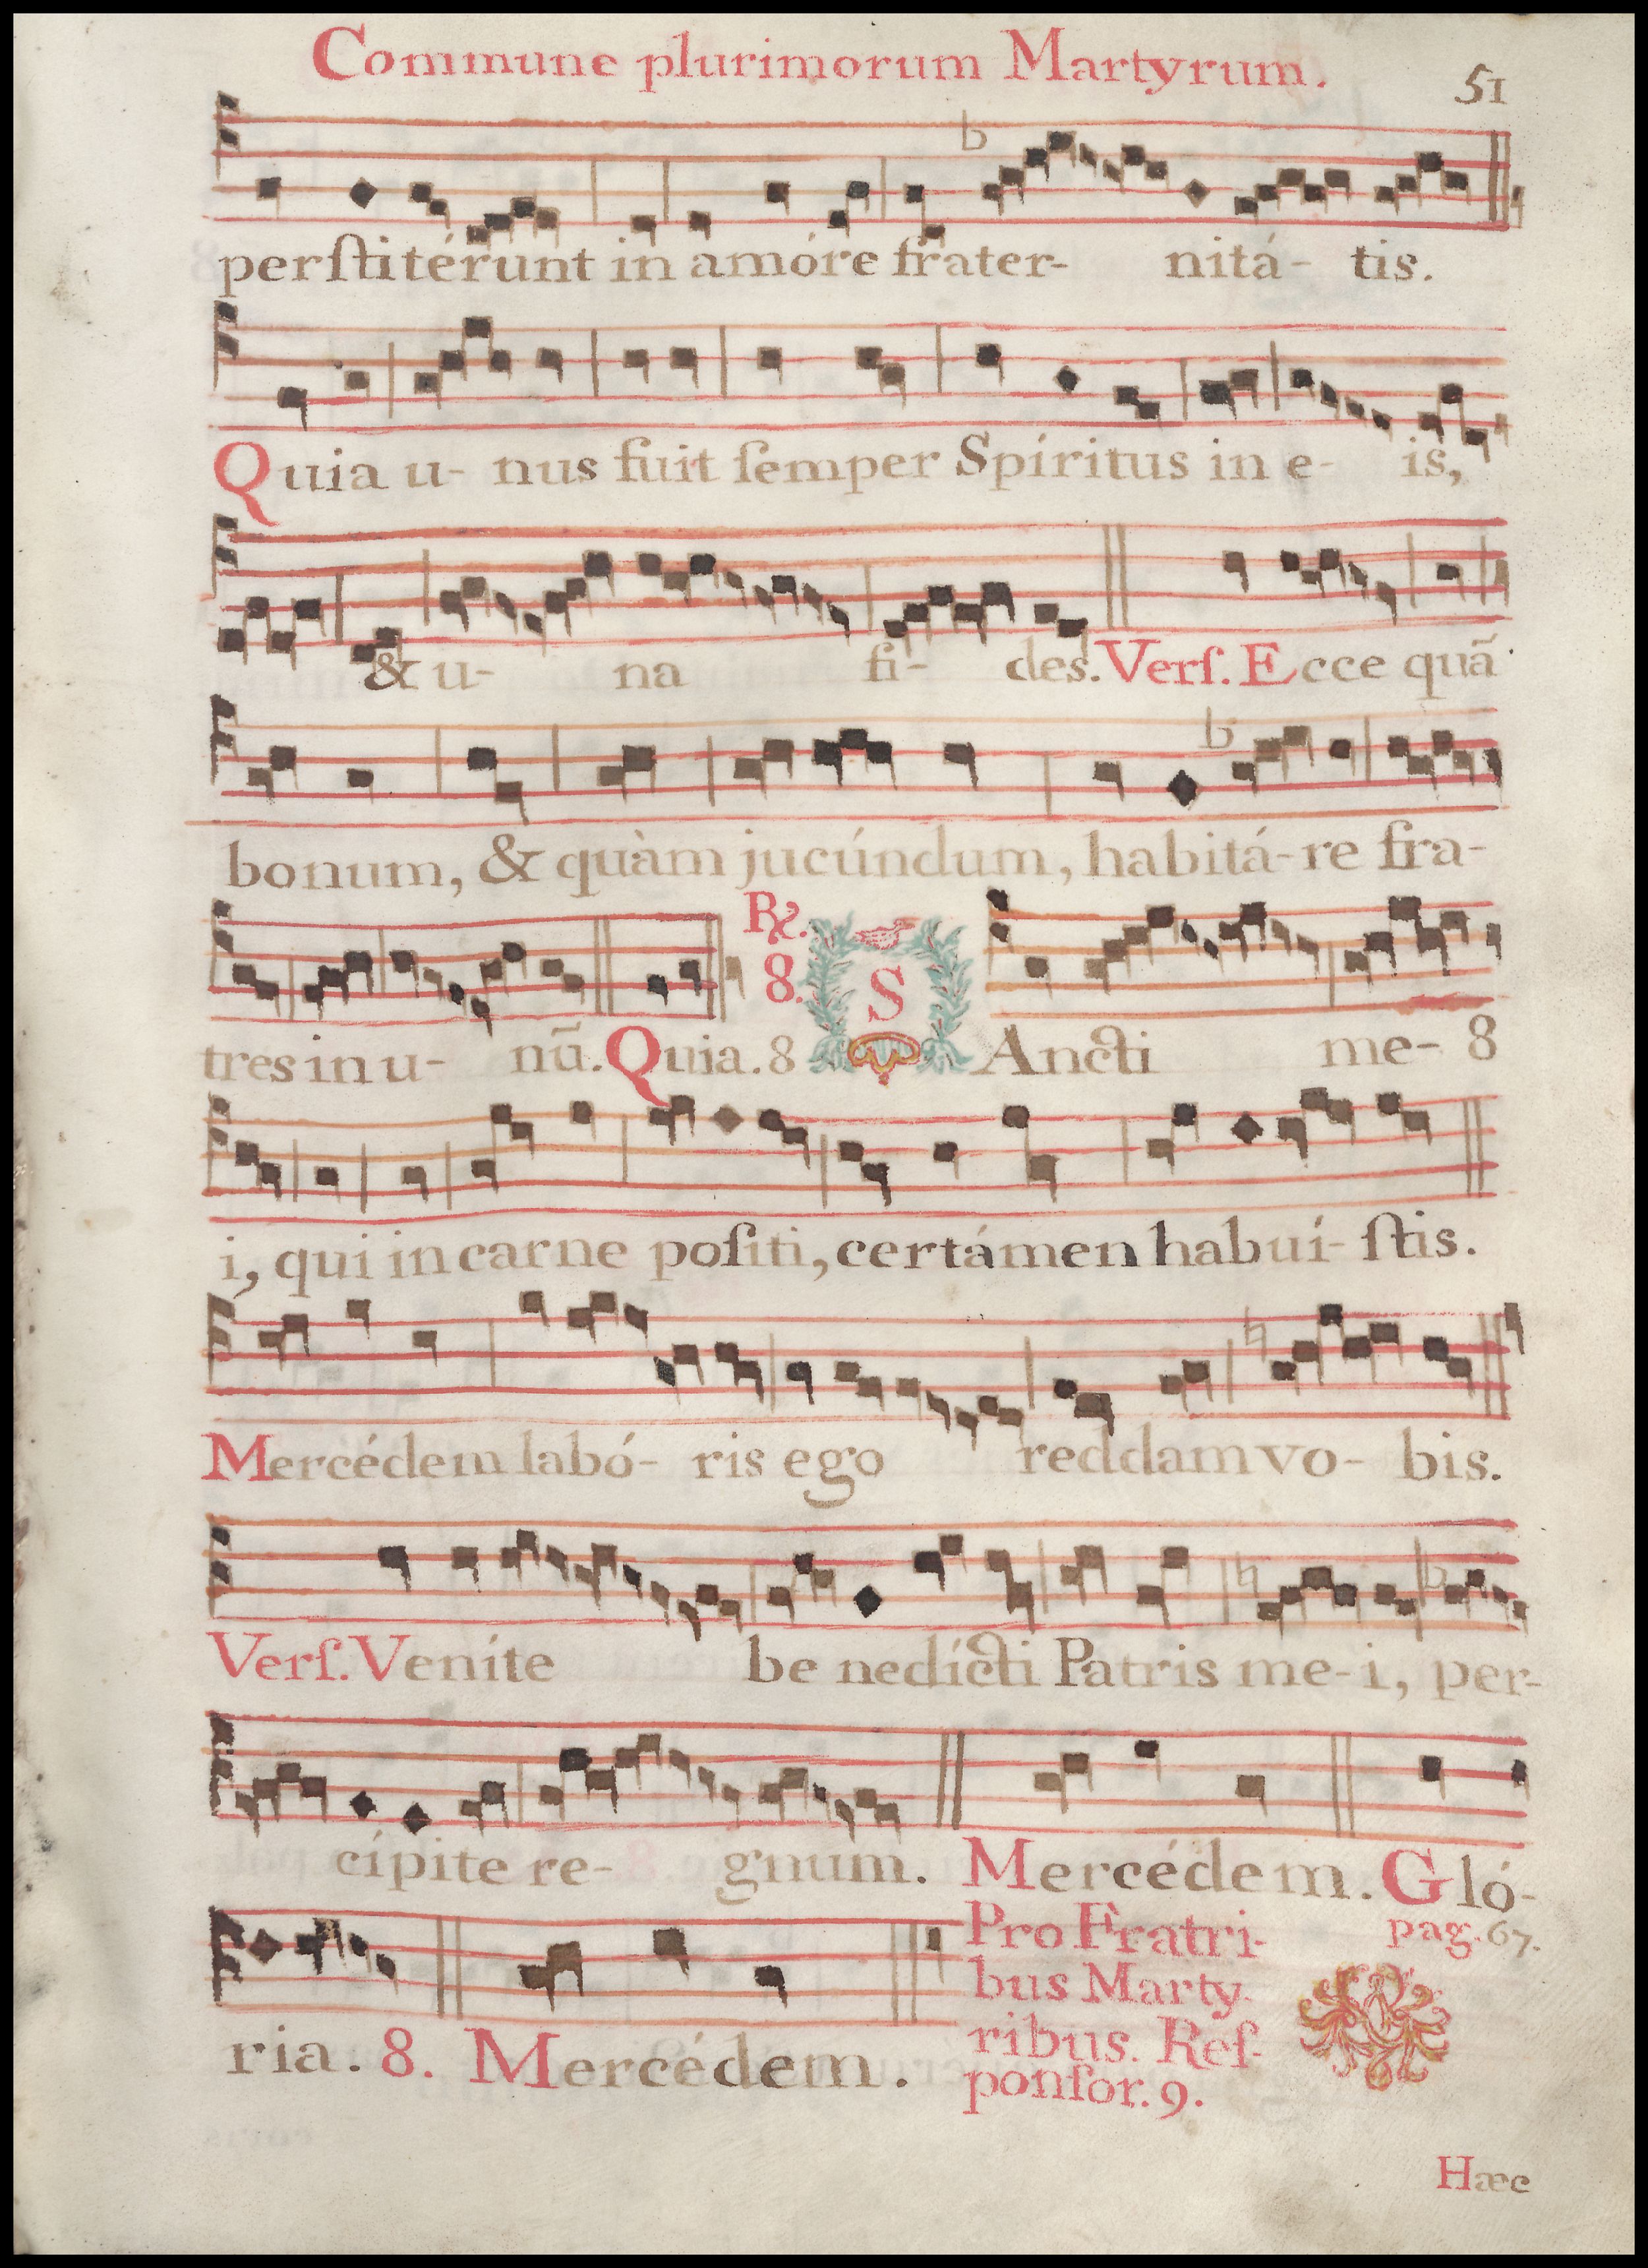 Commune plurimorum Martyrum. 51
perſtitérunt in amóre frater- nitá- tis.
Quia u- nus fuit ſemper Spíritus in e- is,
& u- na fi- des. Verſ. Ecce quã
bonum, & quàm jucúndum, habitá-re fra-
tres in u- nũ. Quia. 8 ℟. 8. SAncti me- 8
i, qui in carne poſiti, certámen habuí- ſtis.
Mercédem labó- ris ego reddam vo- bis.
Verſ. Veníte be nedícti Patris me-i, per-
cípite re- gnum. Mercédem. Gló-
ria. 8. Mercédem.
Pro Fratri-
bus Marty-
ribus. Reſ-
ponſor. 9.
pag. 67.
Hæc